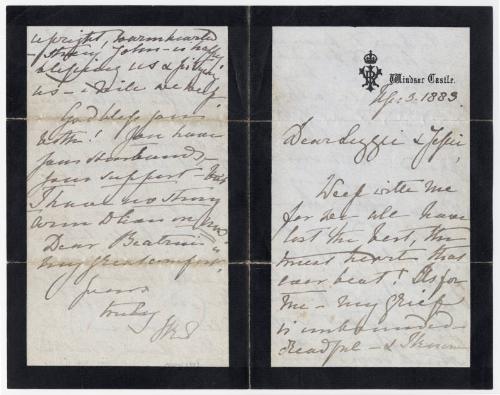 Windsor Castle.
Apr: 3. 1883.
Dear Lizzie & Jessie,
Weep with me
for we all have
lost the best, the
truest heart that
ever beat! As for
me – my grief
is unbounded –
dreadful – & I know
upright, warmhearted
– strong John – is happy
blessing us & pitying
us – while we weep.
God bless you
both! You have
your Husbands –
your support – but
I have no strong
arm to lean on now.
Dear Beatrice
my great comfort.
yours
truly